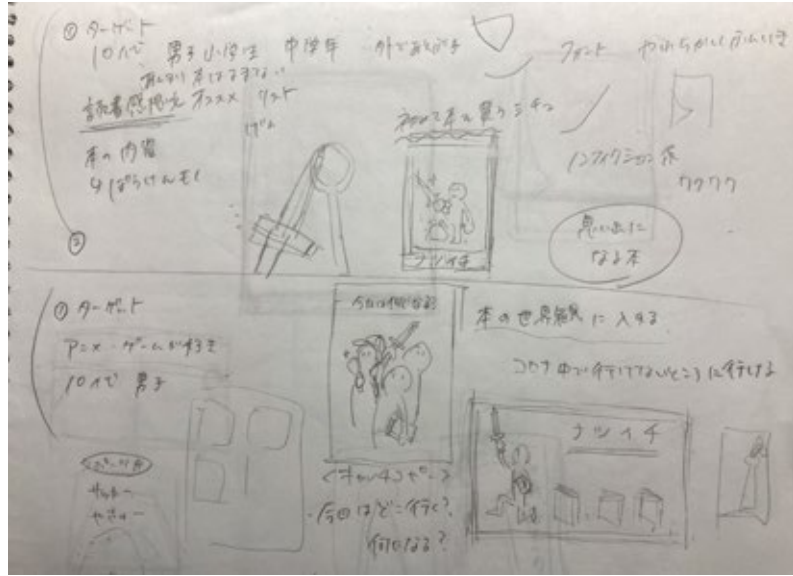 ① ターゲット
10代 男子 小学生 中学年 外であそぶ子
あんまり本はよまない
読書感想文 オススメ リスト
本の内容
初めて本を買うシチュ
フォント やわらかい
ノンフィクション系
ワクワク
思い出に
なる本
ナツイチ
②
① ターゲット
アニメ・ゲームが好き
10代 男子
サッカー
やきゅー
今日は何になる?
<キャッチコピー>
・今日はどこ行く?
何になる?
本の世界観に入る
コロナ中で行けてないところに行ける
ナツイチ